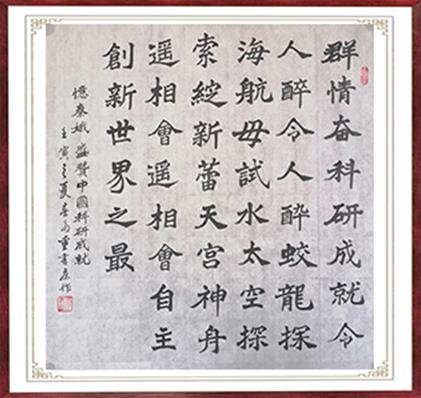 群情奋科研成就令
人醉令人酔蛟龍探
海航母試水太空探
索綻新蕾天宫神舟
遥相會遥相會自主
創新世界之最
憶秦娥 盛贊中國科研成就
壬寅之夏重書原作